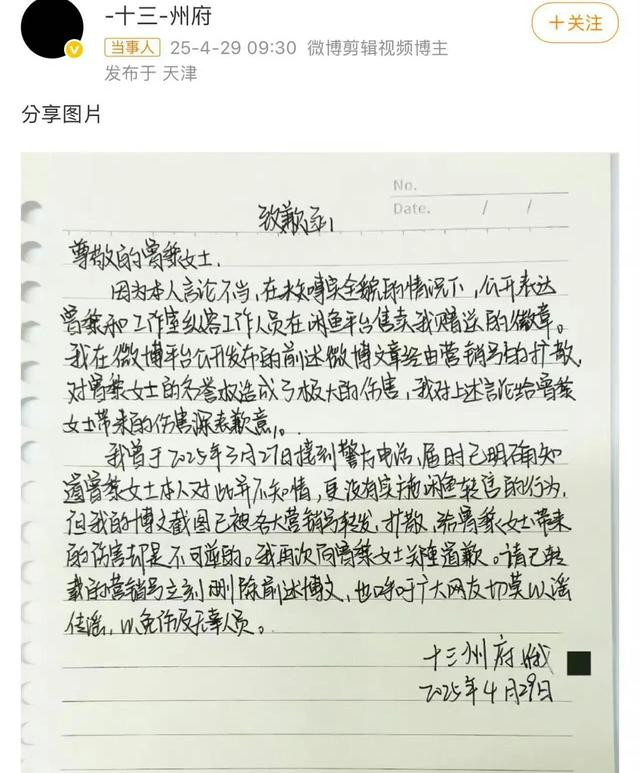 -十三-州府
+关注
当事人 25-4-29 09:30 微博剪辑视频博主
发布于 天津
分享图片
No.
Date. / /
致歉函
尊敬的曾黎女士.
因为本人言论不当,在未知事实全貌的情况下,公开表达
曾黎和工作室以及工作人员在闲鱼平台售卖我赠送的徽章。
我在微博平台公开发布的前述微博文章经由营销号的扩散,
对曾黎女士的名誉权造成了极大的伤害,我对上述言论给曾黎
女士带来的伤害深表歉意。
我曾于2025年3月27日接到警方电话,届时已明确知
道曾黎女士本人对此并不知情,更没有实施闲鱼转售的行为,
但我的博文截图已被各大营销号转发、扩散,给曾黎女士带来
的伤害却是不可逆的。我再次向曾黎女士关障道歉。请已转
载的营销号立刻删除前述博文,也呼吁广大网友切莫以谣
传谣,以免伤及无辜人员。
十三州府
2025年4月29日